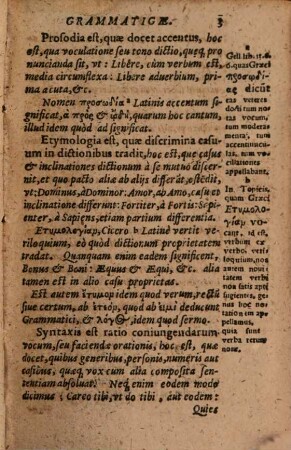 GRAMMATICÆ. 3
Prosodia est, quæ docet accentus, hoc
est, qua voculatione seu tono dictio, quęq, pro
nuncianda sit, vt: Libêre, cùm verbum est,
media circumflexa: Libere aduerbium, prima
acuta, &c.
Nomen προσωδία a Latinis accentum significat,
à πρὸς & ᾠδὴ, quarum hoc cantum,
illud idem quod ad significat.
Etymologia est, quæ discrimina casuum
in dictionibus tradit, hoc est, quę casus
& inclinationes dictionū à motu suo discernit,
& quo pacto aliæ ab alijs differāt, ostēdit,
vt: Dominus, à Dominor: Amor, ab Amo, casu et
inclinatione differunt: Fortiter, à Fortis: Sepienter,
à Sapiens, etiam partium differentia.
Ετυμολογίαν, Cicero b Latinè vertit veriloquium,
eò quòd dictionum proprietatem
tradat. Quanquam enim eadem significent,
Bonus & Boni: Æquus & Æqui, &c. alia
tamen est in alio casu proprietas.
Est autem ἔτυμον idem quod verum, rectū
siue certum, ab ἐτὸν, quod ab εἰμὶ deducunt
Grammatici, & λόγος, idem quod sermo.
Syntaxis est ratio coniungendarum
vocum, seu faciendæ orationis, hoc est, quæ
docet, quibus generibus, personis, numeris aut
casibus, quæq, vox cum alia composita sententiam
absoluat. Neq, enim eodem modo
dicimus Careo tibi, vt do tibi, aut eodem:
Quies
a Gell lib.13.
quas Græci
προσωδίας
dicūt
eas veteres
docti tum
notas vocum,
tum moderamenta,
tum
accentiunculas,
tum
voculationes
appellabant.
b In Topicis,
quam Græci
Ετυμολογίαν
vocant,
id est,
verbum ex
verbo, veriloquium:
nos autem
nouitatem
verbi non
satis apti
fugientes,
hoc genus
notationem
appellamus,
quia
sunt verba
rerum
notæ.